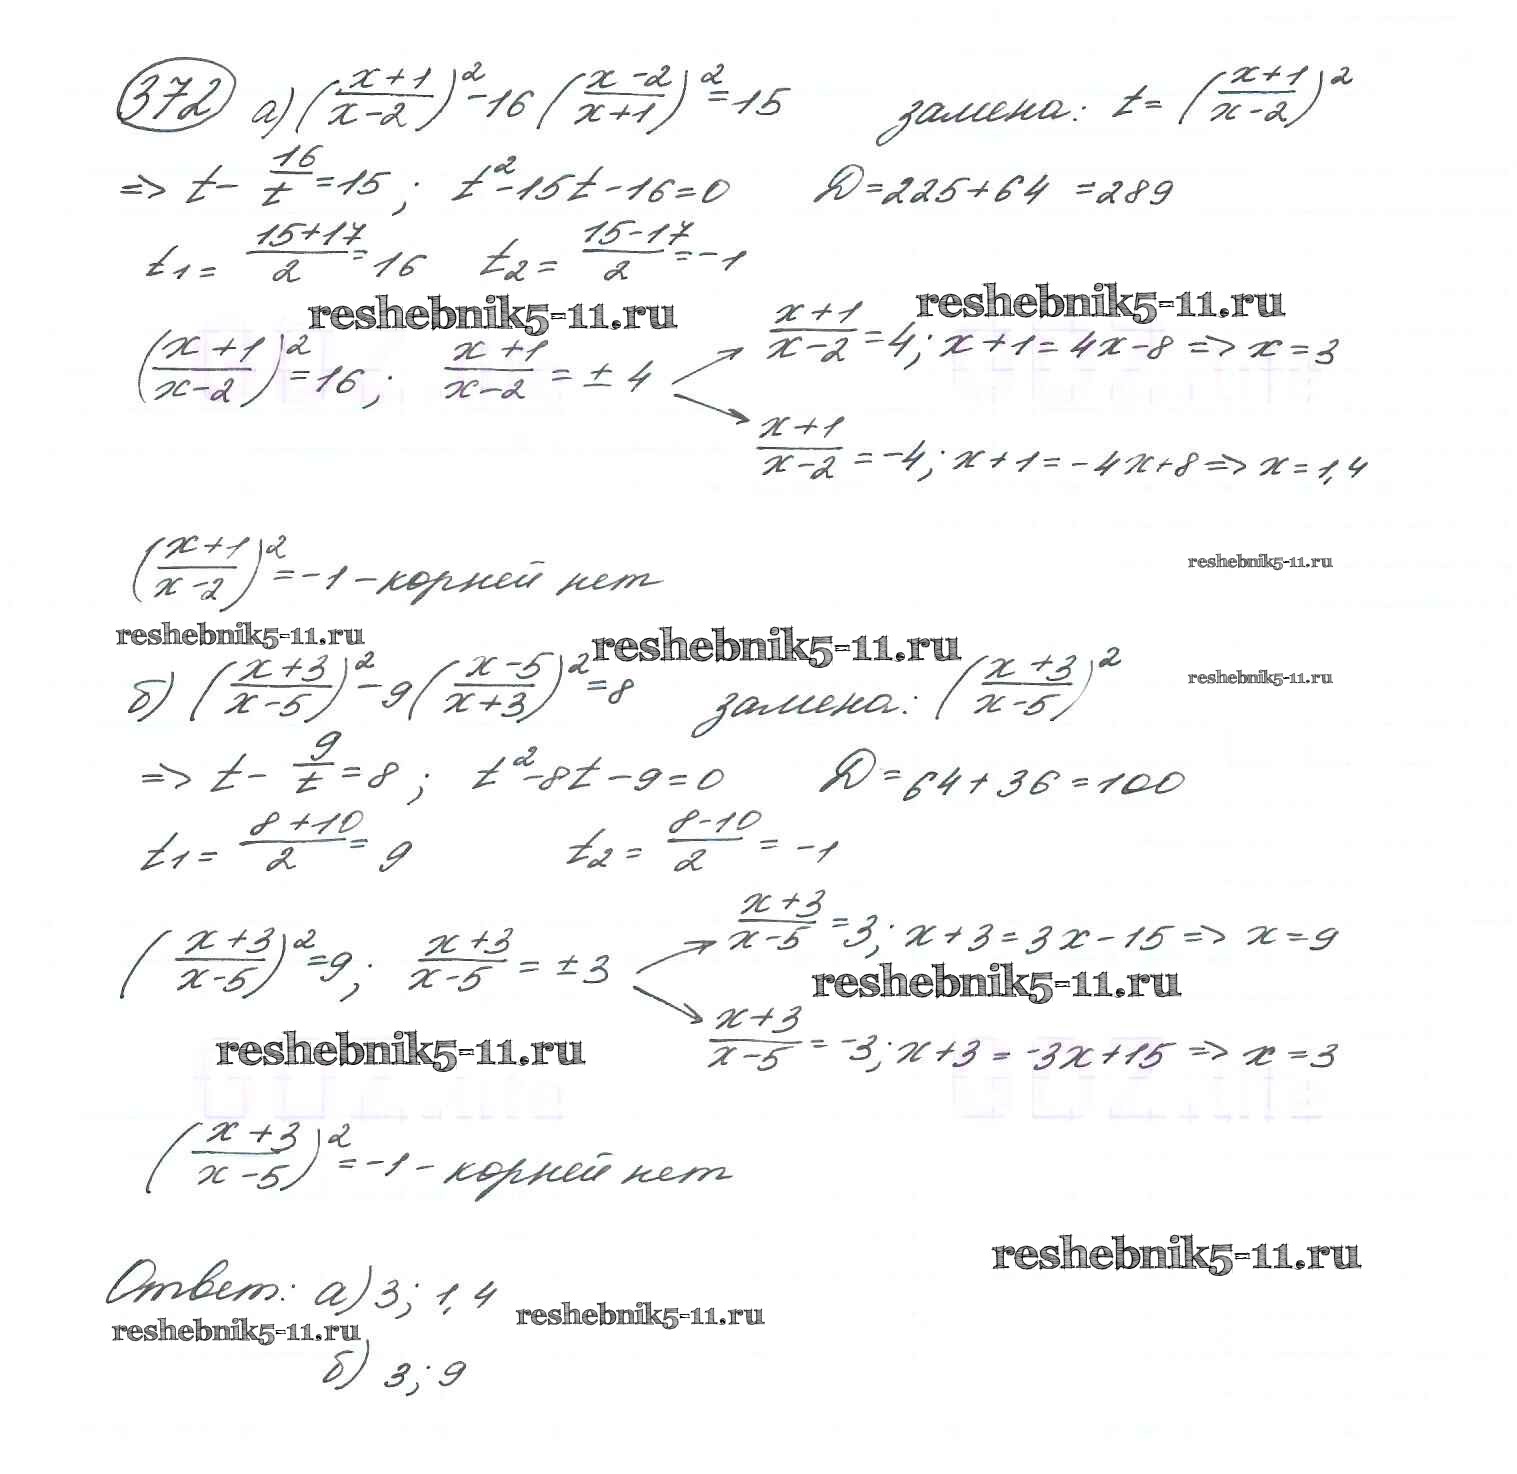 372 а) ((x+1)/(x-2))² - 16 ((x-2)/(x+1))² = 15 замена: t = ((x+1)/(x-2))²
=> t - 16/t = 15; t² - 15t - 16 = 0 D = 225 + 64 = 289
t1 = (15+17)/2 = 16 t2 = (15-17)/2 = -1
reshebnik5-11.ru reshebnik5-11.ru
((x+1)/(x-2))² = 16; (x+1)/(x-2) = ± 4
(x+1)/(x-2) = 4; x+1 = 4x-8 => x = 3
(x+1)/(x-2) = -4; x+1 = -4x+8 => x = 1,4
((x+1)/(x-2))² = -1 - корней нет
reshebnik5-11.ru
reshebnik5-11.ru reshebnik5-11.ru
б) ((x+3)/(x-5))² - 9 ((x-5)/(x+3))² = 8 замена: ((x+3)/(x-5))²
reshebnik5-11.ru
=> t - 9/t = 8; t² - 8t - 9 = 0 D = 64 + 36 = 100
t1 = (8+10)/2 = 9 t2 = (8-10)/2 = -1
((x+3)/(x-5))² = 9; (x+3)/(x-5) = ± 3
(x+3)/(x-5) = 3; x+3 = 3x-15 => x = 9
reshebnik5-11.ru
(x+3)/(x-5) = -3; x+3 = -3x+15 => x = 3
reshebnik5-11.ru
((x+3)/(x-5))² = -1 - корней нет
reshebnik5-11.ru
Ответ: а) 3; 1,4
reshebnik5-11.ru reshebnik5-11.ru
б) 3; 9